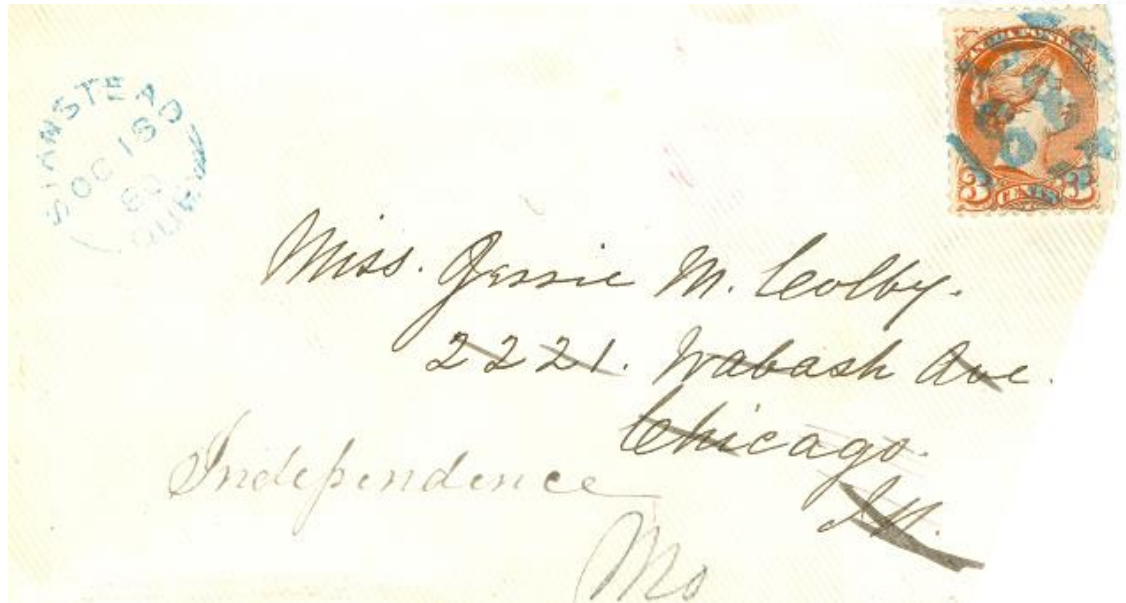 STANSTEAD
OC 18
80
QUE
CANADA POSTAGE
3 CENTS 3
Miss. Jessie M. Colby.
2221. Wabash Ave.
Chicago.
Ill.
Independence
Mo